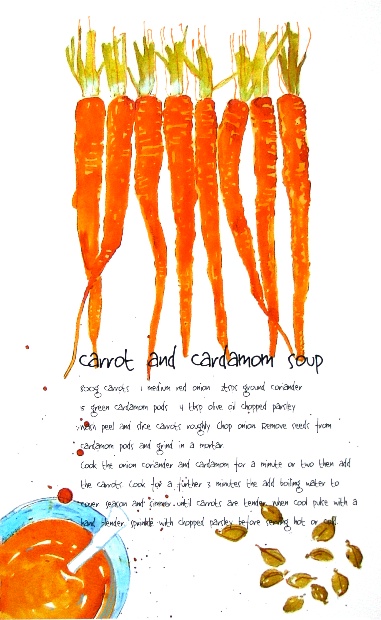 carrot and cardamom soup
carrots 1 medium red onion 2tsps ground coriander
5 green cardamom pods 4 tbsp olive oil chopped parsley
Wash peel and slice carrots roughly chop onion Remove seeds from
cardamom pods and grind in a mortar.
Cook the onion coriander and cardamom for a minute or two then add
the carrots Cook for a further 3 minutes the add boiling water to
cover season and simmer until carrots are tender. when cool pulse with a
hand blender. sprinkle with chopped parsley before serving hot or